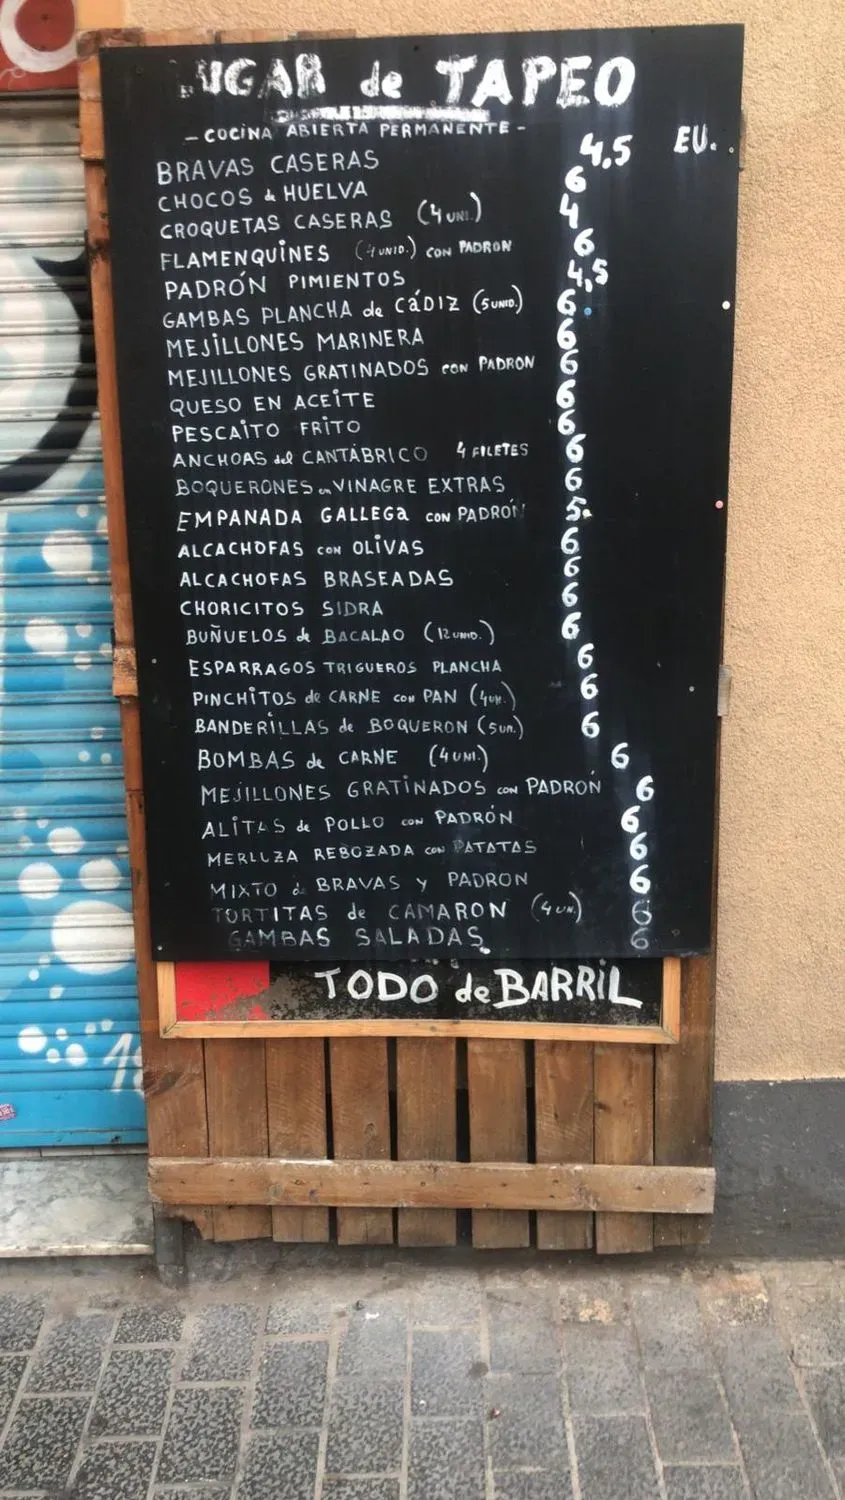 LUGAR de TAPEO
- COCINA ABIERTA PERMANENTE -
EU.
BRAVAS CASERAS 4,5
CHOCOS de HUELVA 6
CROQUETAS CASERAS (4 UNI.) 4
FLAMENQUINES (4 UNID.) CON PADRON 6
PADRÓN PIMIENTOS 4,5
GAMBAS PLANCHA de CáDIZ (5 UNID.) 6
MEJILLONES MARINERA 6
MEJILLONES GRATINADOS CON PADRON 6
QUESO EN ACEITE 6
PESCAITO FRITO 6
ANCHOAS del CANTÁBRICO 4 FILETES 6
BOQUERONES en VINAGRE EXTRAS 6
EMPANADA GALLEGA CON PADRÓN 5
ALCACHOFAS CON OLIVAS 6
ALCACHOFAS BRASEADAS 6
CHORICITOS SIDRA 6
BUÑUELOS de BACALAO (12 UNID.) 6
ESPARRAGOS TRIGUEROS PLANCHA 6
PINCHITOS de CARNE CON PAN (4 UN.) 6
BANDERILLAS de BOQUERON (5 UN.) 6
BOMBAS de CARNE (4 UNI.) 6
MEJILLONES GRATINADOS CON PADRON 6
ALITAS de POLLO CON PADRÓN 6
MERLUZA REBOZADA CON PATATAS 6
MIXTO de BRAVAS Y PADRON 6
TORTITAS de CAMARON (4 UN.) 6
GAMBAS SALADAS 6
TODO de BARRIL